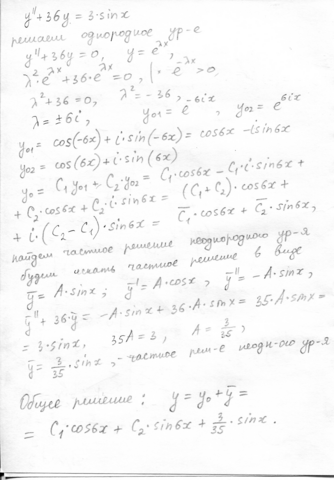 y''+36y = 3·sinx
решаем однородное ур-е
y''+36y = 0, y = e^λx,
λ²·e^λx + 36·e^λx = 0, |·e^-λx > 0,
λ²+36 = 0, λ² = -36,
λ = ±6i, y₀₁ = e^-6ix, y₀₂ = e^6ix
y₀₁ = cos(-6x) + i·sin(-6x) = cos6x - i sin6x
y₀₂ = cos(6x) + i·sin(6x)
y₀ = C₁y₀₁ + C₂·y₀₂ = C₁·cos6x - C₁·i·sin6x +
+ C₂·cos6x + C₂·i·sin6x = (C₁+C₂)·cos6x +
+ i·(C₂-C₁)·sin6x = C̅₁·cos6x + C̅₂·sin6x,
найдем частное решение неоднородного ур-я
будем искать частное решение в виде
y̅ = A·sinx; y̅' = A·cosx, y̅'' = -A·sinx,
y̅''+36·y̅ = -A·sinx + 36·A·sinx = 35·A·sinx =
= 3·sinx, 35A = 3, A = 3/35,
y̅ = 3/35·sinx, - частное реш-е неодн-ого ур-я
Общее решение: y = y₀ + y̅ =
= C₁·cos6x + C₂·sin6x + 3/35·sinx.